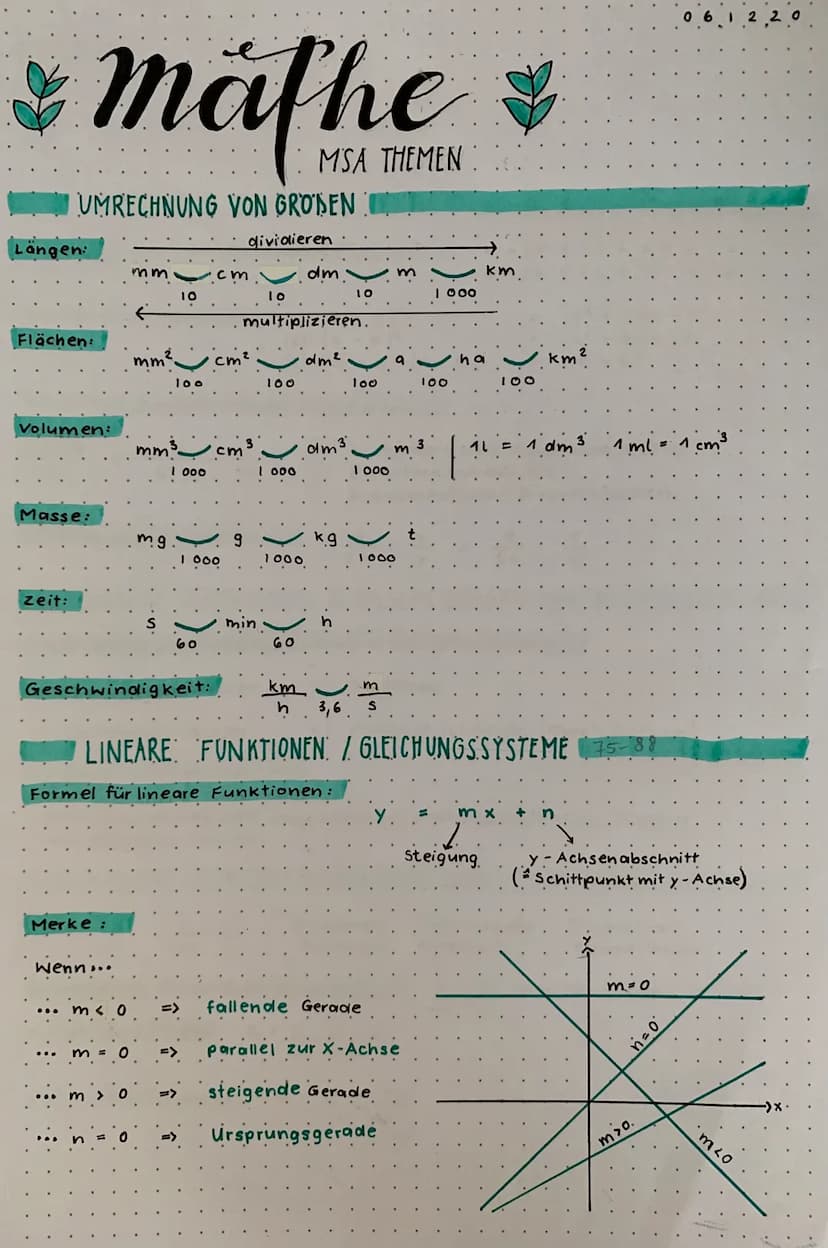 061220
mathe
MSA THEMEN
UMRECHNUNG VON GRÖßEN
Längen:
dividieren
mm cm dm m km
10 10 10 1000
multiplizieren
Flächen:
mm² cm² dm² a ha km²
100 100 100 100 100
Volumen:
mm³ cm³ dm³ m³ | 1l = 1 dm³ 1ml = 1 cm³
1000 1000 1000
Masse:
mg g kg t
1000 1000 1000
Zeit:
s min h
60 60
Geschwindigkeit:
km/h 3,6 m/s
LINEARE FUNKTIONEN / GLEICHUNGSSYSTEME 75-88
Formel für lineare Funktionen:
y = mx + n
Steigung
y-Achsenabschnitt
(≙ Schittpunkt mit y-Achse)
Merke:
Wenn...
... m < 0 => fallende Gerade
... m = 0 => parallel zur X-Achse
... m > 0 => steigende Gerade
... n = 0 => Ursprungsgerade
y
m=0
n=0
x
m>0
m<0